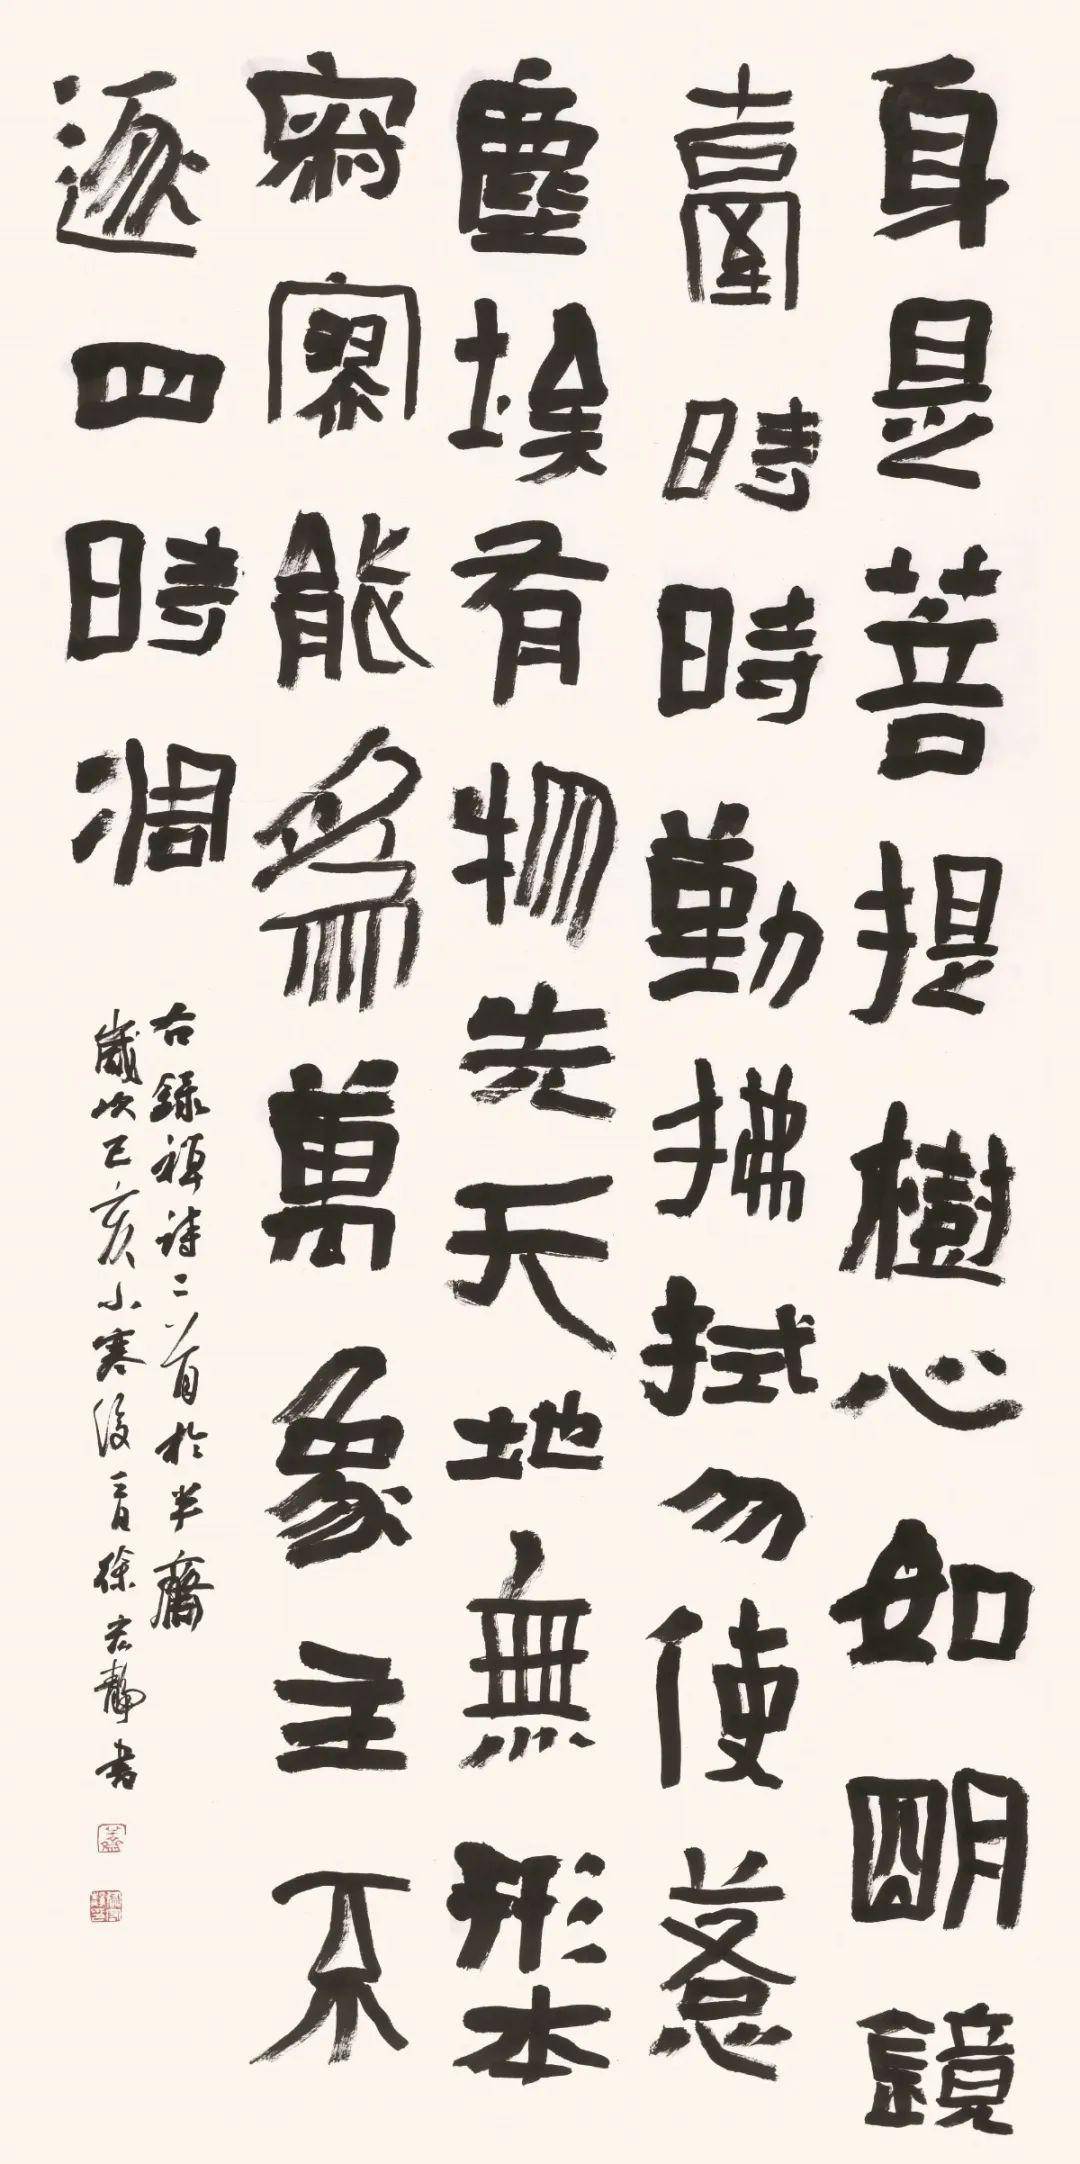 身是菩提樹心如明鏡
臺時時勤拂拭勿使惹
塵埃有物先天地無形本
寂寥能爲萬象主不
逐四時凋
右錄禪詩二首於半齋
歲次己亥小寒後日徐靜書